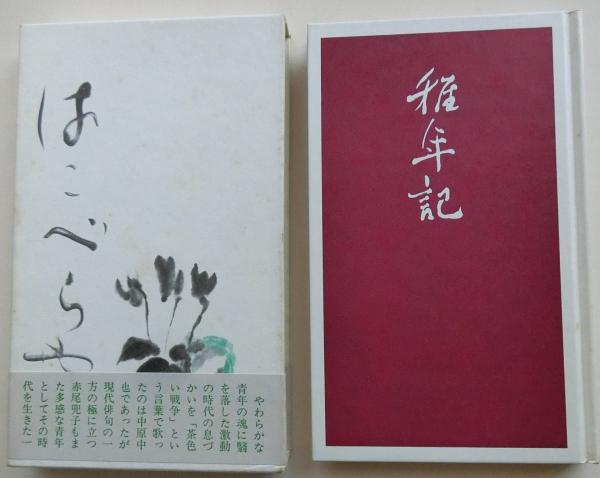 はこべらや
やわらかな
青年の魂に翳
を落した激動
の時代の息づ
かいを「茶色
い戦争」とい
う言葉で歌っ
たのは中原中
也であったが
現代俳句の一
方の極に立つ
赤尾兜子もま
た多感な青年
としてその時
代を生きた一
稚年記